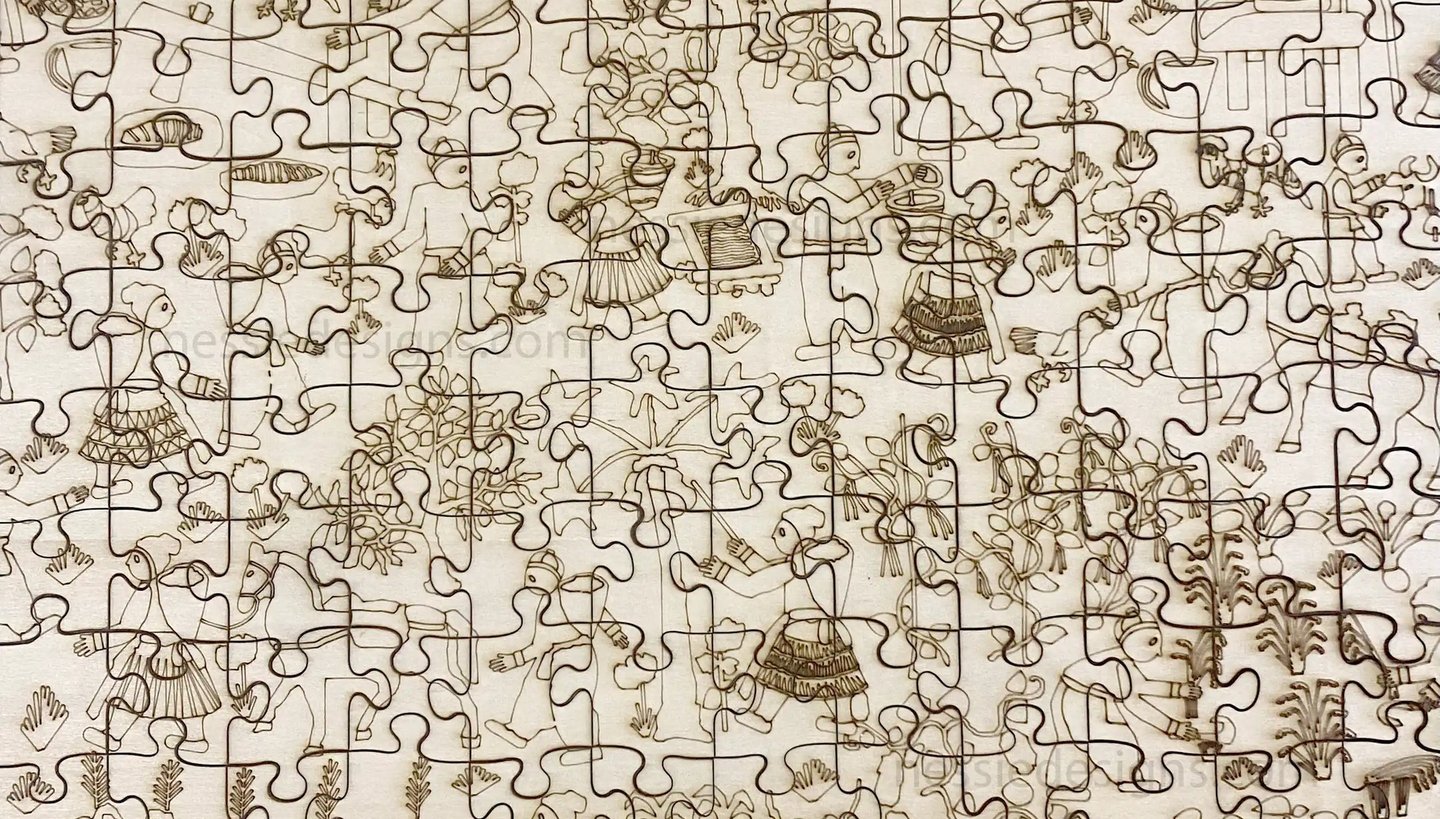 nessiedesigns.com
nessiedesigns.com
nessiedesigns.com